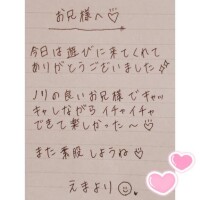 お兄様へ♡
今日は遊びに来てくれて
ありがとうございました✨
ノリの良いお兄様でキャッ
キャしながらイチャイチャ
できて楽しかった〜♡
また素股しようね♡
えまより☺